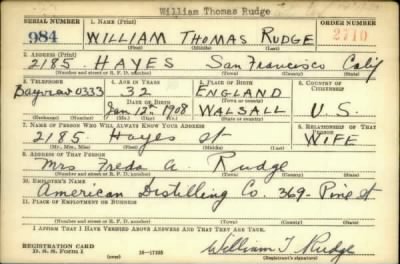 William Thomas Rudge
SERIAL NUMBER 1. NAME (Print) ORDER NUMBER
984 WILLIAM THOMAS RUDGE 2710
(First) (Middle) (Last)
2. ADDRESS (Print)
2185 HAYES San Francisco Calif
(Number and street or R. F. D. number) (Town) (County) (State)
3. TELEPHONE 4. AGE IN YEARS 5. PLACE OF BIRTH 6. COUNTRY OF CITIZENSHIP
Bayview 0333 32 ENGLAND
DATE OF BIRTH (Town or county)
Jan 12th 1908 WALSALL U. S.
(Exchange) (Number) (Mo.) (Day) (Yr.) (State or country)
7. NAME OF PERSON WHO WILL ALWAYS KNOW YOUR ADDRESS 8. RELATIONSHIP OF THAT PERSON
2185 Hayes St WIFE
(Mr., Mrs., Miss) (First) (Middle) (Last)
9. ADDRESS OF THAT PERSON
Mrs Freda A. Rudge
(Number and street or R. F. D. number) (Town) (County) (State)
10. EMPLOYER'S NAME
American Distilling Co. 369- Pine St
11. PLACE OF EMPLOYMENT OR BUSINESS
(Number and street or R. F. D. number) (Town) (County) (State)
I AFFIRM THAT I HAVE VERIFIED ABOVE ANSWERS AND THAT THEY ARE TRUE.
REGISTRATION CARD
D. S. S. Form 1 16-17105 William T. Rudge
(Registrant's signature)